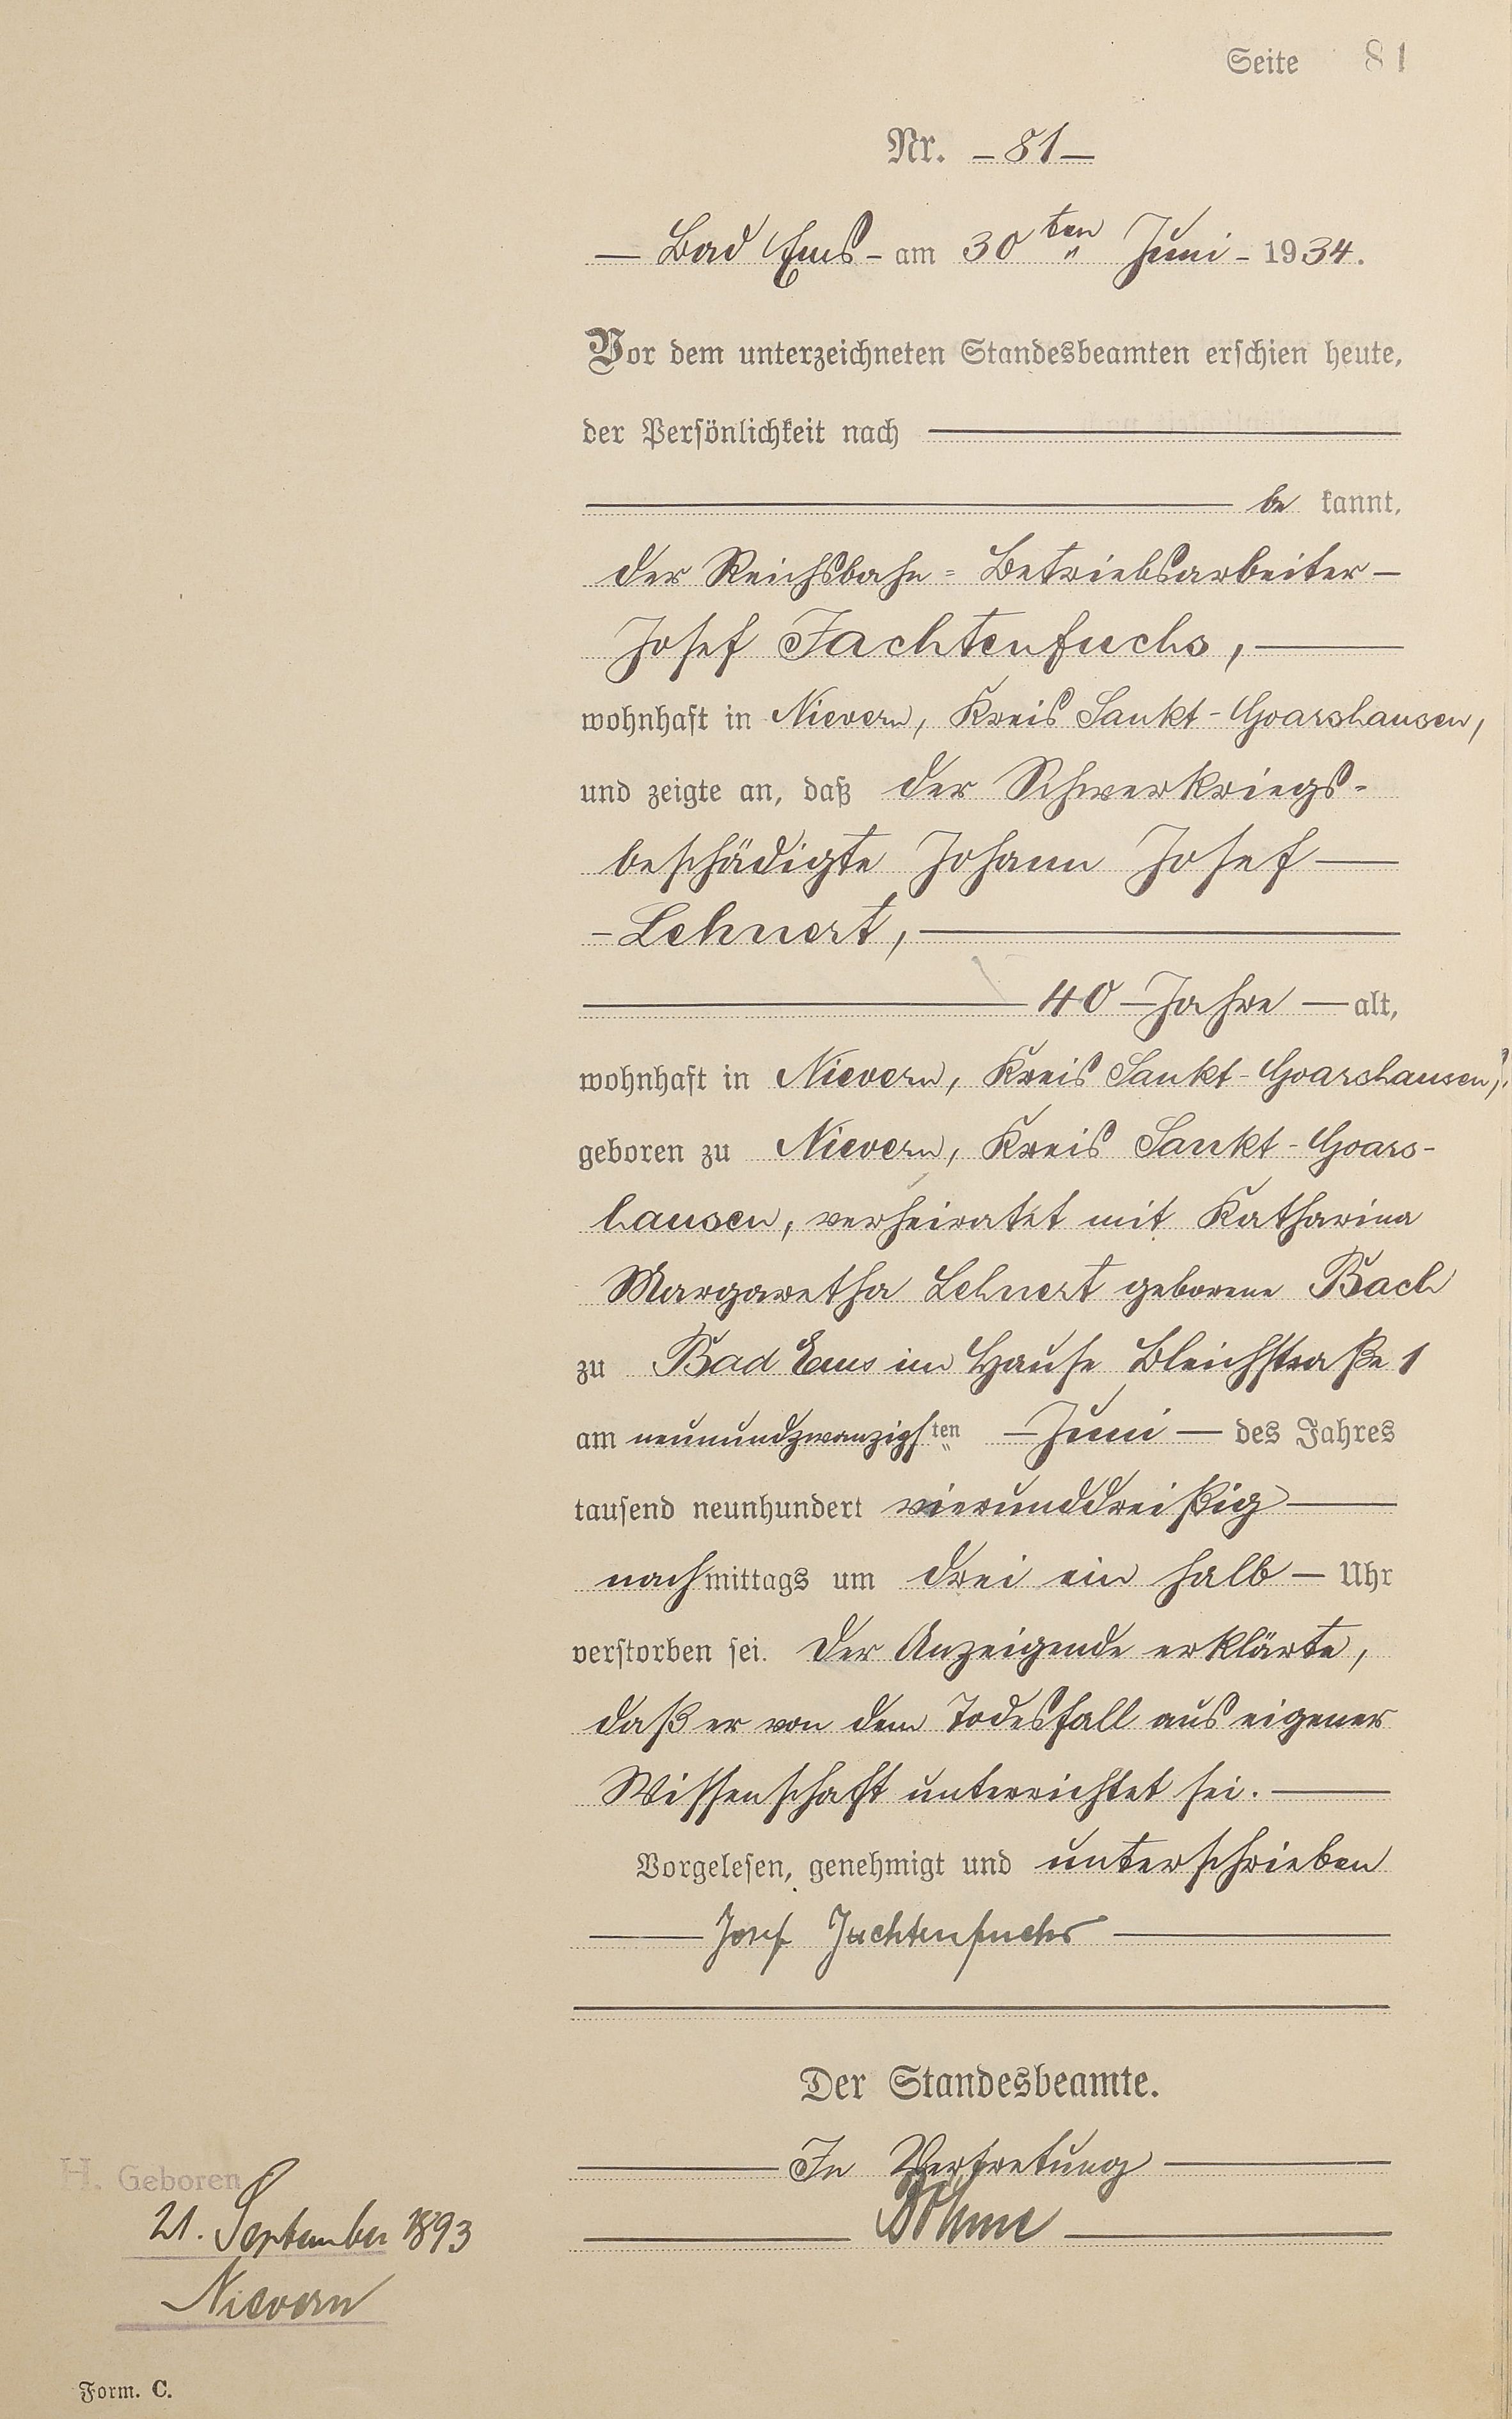 Seite 81
Nr. - 81 -
— Bad Ems - am 30ten Juni - 1934.
Vor dem unterzeichneten Standesbeamten erschien heute,
der Persönlichkeit nach
be kannt,
der Reichsbahn = Betriebsarbeiter —
Josef Jachtenfuchs, —
wohnhaft in Nievern, Kreis Sankt-Goarshausen,
und zeigte an, daß der Schwerkriegs-
beschädigte Johann Josef —
- Lehnert, —
40 — Jahre — alt,
wohnhaft in Nievern, Kreis Sankt-Goarshausen,
geboren zu Nievern, Kreis Sankt-Goars-
hausen, verheiratet mit Katharina
Margaretha Lehnert geborene Bach
zu Bad Ems im Hause Bleichstraße 1
am neunundzwanzigsten — Juni — des Jahres
tausend neunhundert vierunddreißig —
nachmittags um drei ein halb — Uhr
verstorben sei. Der Anzeigende erklärte,
daß er von dem Todesfall aus eigener
Wissenschaft unterrichtet sei. —
Vorgelesen, genehmigt und unterschrieben
— Josef Jachtenfuchs —
Der Standesbeamte.
— In Vertretung —
— Böhme —
H. Geboren
21. September 1893
Nievern
Form. C.